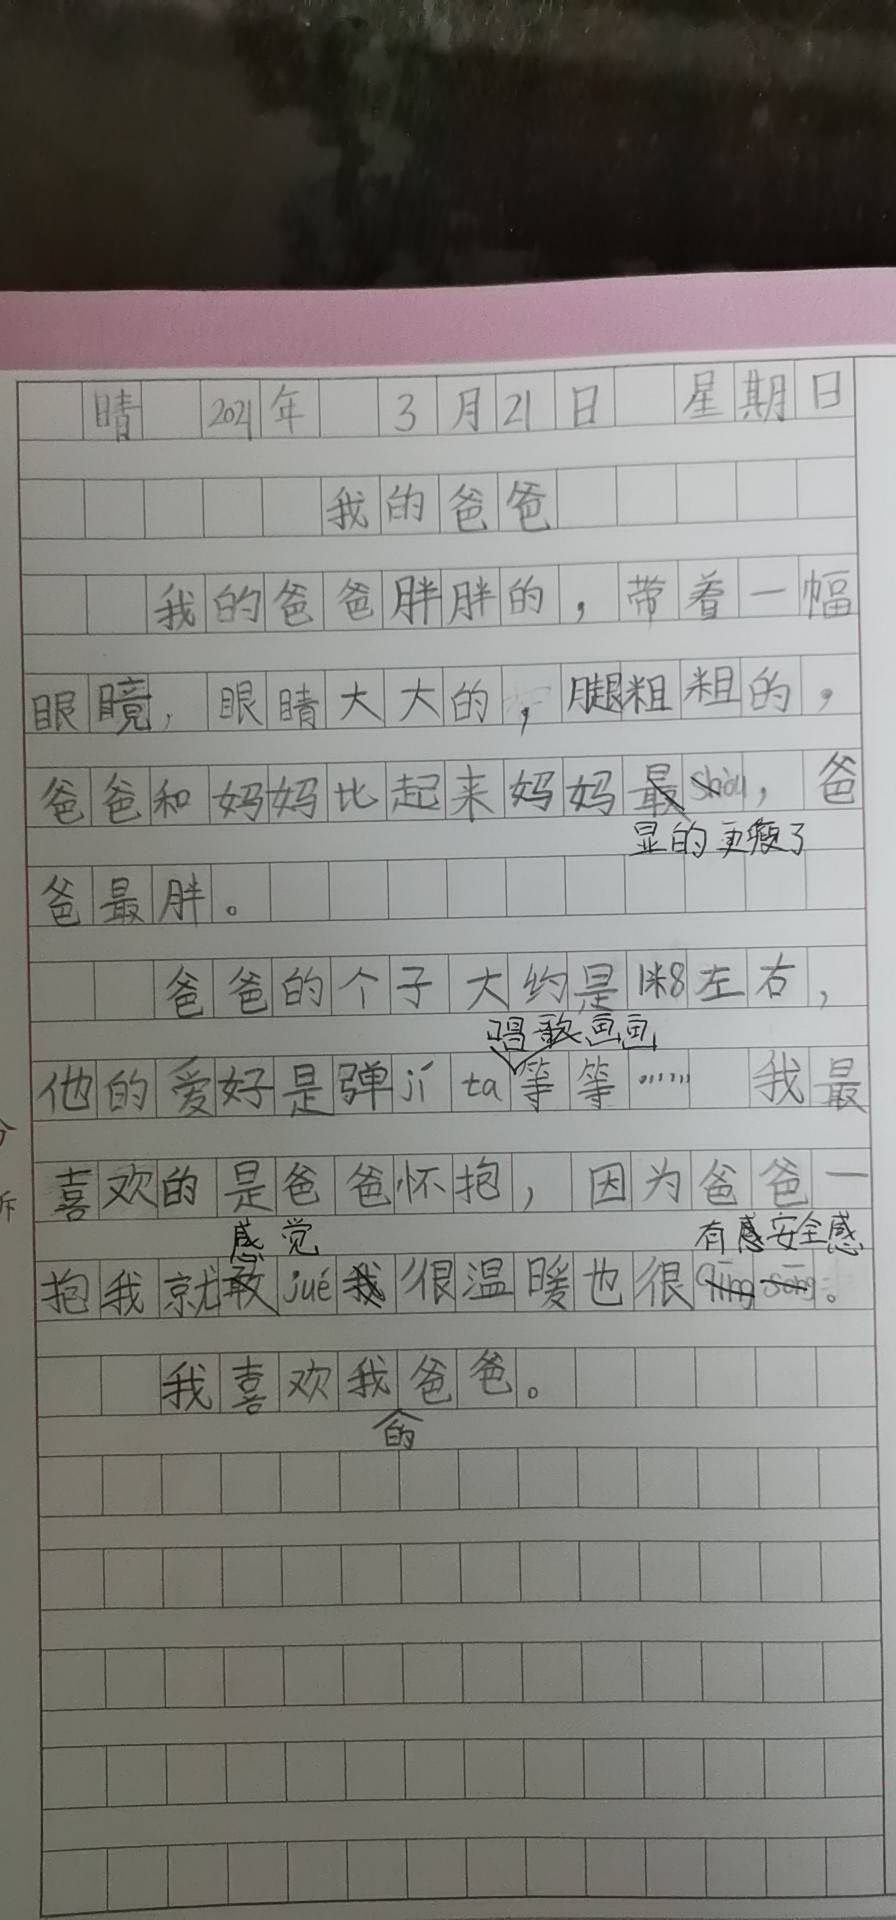 晴 2021年 3月21日 星期日
我的爸爸
我的爸爸胖胖的，带着一幅
眼镜，眼睛大大的，腿粗粗的，
爸爸和妈妈比起来妈妈最shòu，爸
显的更瘦了
爸最胖。
爸爸的个子大约是1米8左右，
唱歌画画
他的爱好是弹jí ta等等…… 我最
喜欢的是爸爸怀抱，因为爸爸一
感觉 有感安全感
抱我就敢jué我很温暖也很qīng sōng。
我喜欢我爸爸。
的